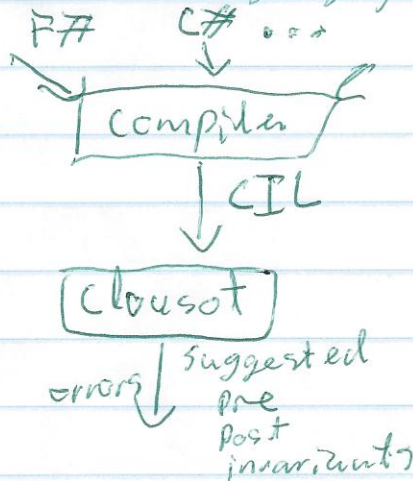 F# C# ...
Compiler
CIL
Clousot
errors
suggested
pre
post
invariants